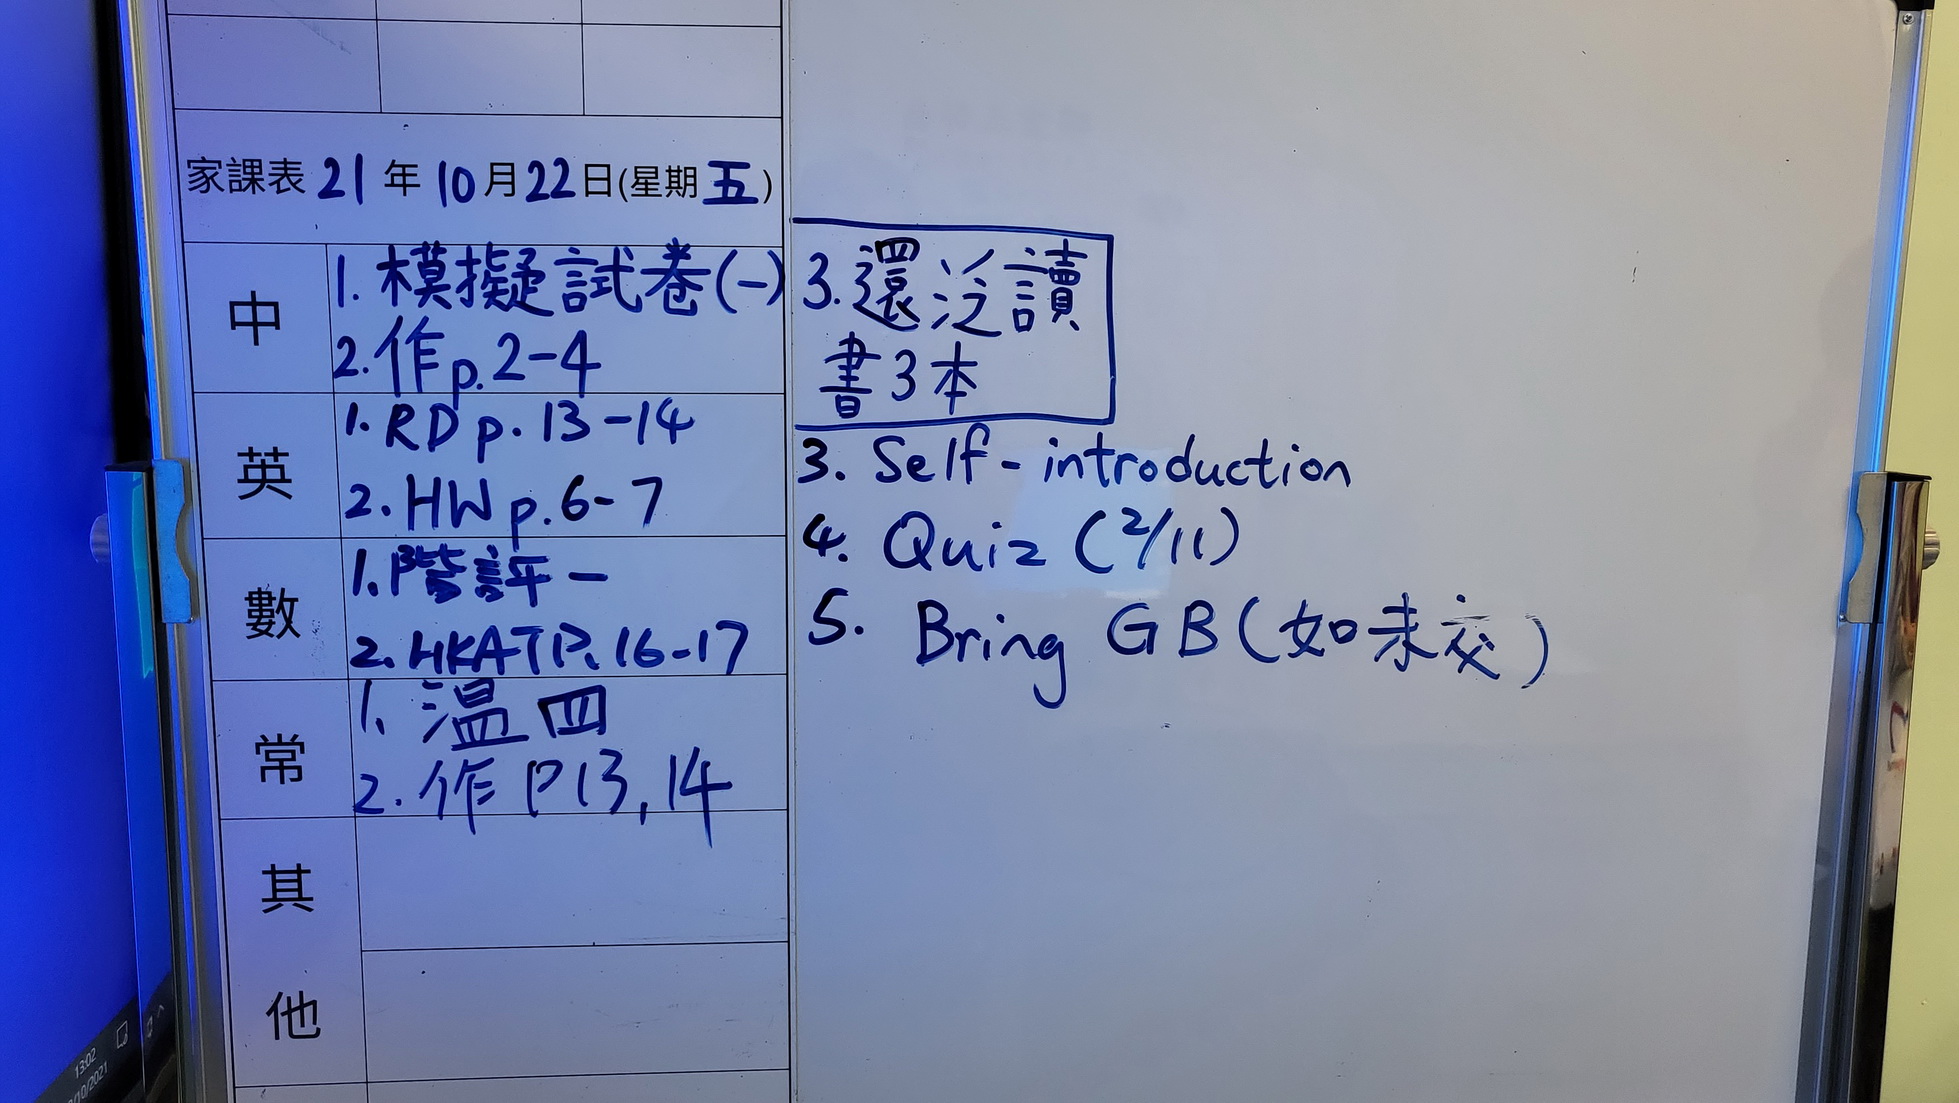 家課表 21 年 10 月 22 日(星期 五)
中
1. 模擬試卷(一)
2. 作 p. 2-4
3. 還泛讀
書3本
英
1. RD p. 13-14
2. HW p. 6-7
3. Self-introduction
4. Quiz (2/11)
5. Bring GB (如未交)
數
1. 階評一
2. HKAT P. 16-17
常
1. 溫四
2. 作 P13, 14
其
他
13:02